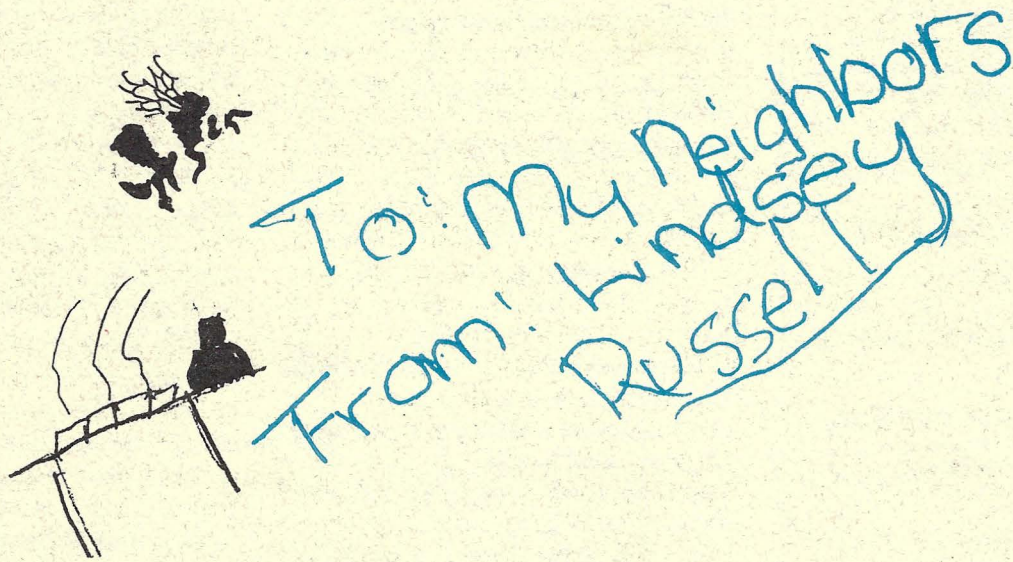 To: My Neighbors
From: Lindsey
Russell